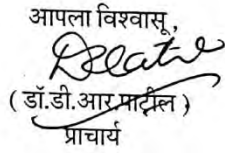 आपला विश्वासू,
( डॉ.डी.आर.पाटील )
प्राचार्य